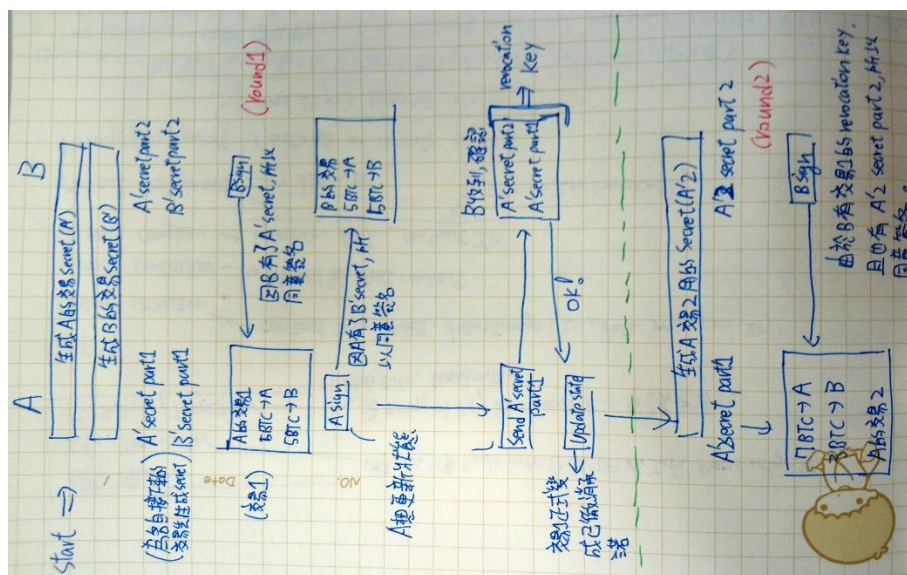 Start ⇒
A
B
生成A的交易secret(A')
生成B的交易secret(B')
(為各自接下來的
交易先生成secret)
A'secret part1
B'secret part1
A'secret part2
B'secret part2
(round1)
Date
(交易1)
A的交易1
5BTC→A
5BTC→B
B sign
因B有了A'secret, 所以
同意簽名
NO.
A sign
因A有了B'secret, 所
以同意簽名
B的交易
5BTC→A
5BTC→B
A想更新狀態
Send A'secret
part1
B收到,確認
A'secret part2
A'secret part1
⇒ revocation
Key
OK!
Update state
交易1正式變
成已做消
諾
生成A交易2用的secret(A'2)
A'secret part1
A'2 secret part 2
(round2)
7BTC→A
3BTC→B
A的交易2
B sign
由於B有交易1的revocation key
且也有A'2 secret part2, 所以
同意簽名。